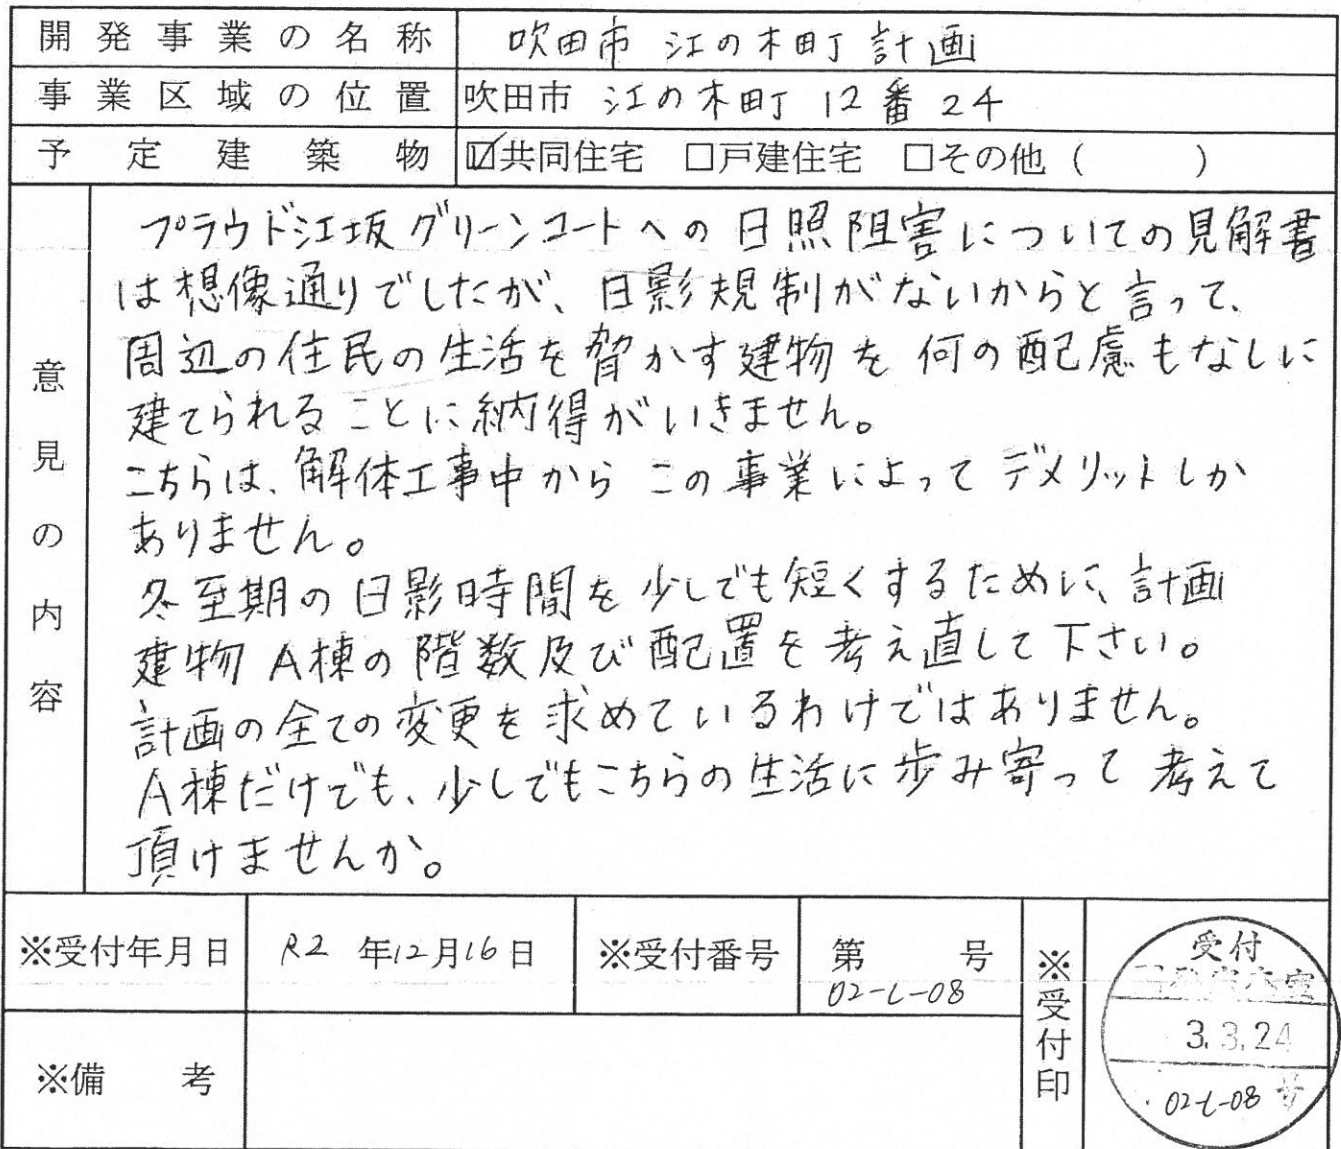 開発事業の名称 吹田市 江の木町 計画
事業区域の位置 吹田市 江の木町 12番24
予定建築物 ☑共同住宅 □戸建住宅 □その他( )
意見の内容
プラウド江坂グリーンコートへの日照阻害についての見解書
は想像通りでしたが、日影規制がないからと言って、
周辺の住民の生活を脅かす建物を何の配慮もなしに
建てられることに納得がいきません。
こちらは、解体工事中からこの事業によってデメリットしか
ありません。
冬至期の日影時間を少しでも短くするために、計画
建物A棟の階数及び配置を考え直して下さい。
計画の全ての変更を求めているわけではありません。
A棟だけでも、少しでもこちらの生活に歩み寄って考えて
頂けませんか。
※受付年月日 R2年12月16日 ※受付番号 第 号
02-L-08
※受付印
受付
3.3.24
02-L-08
※備考